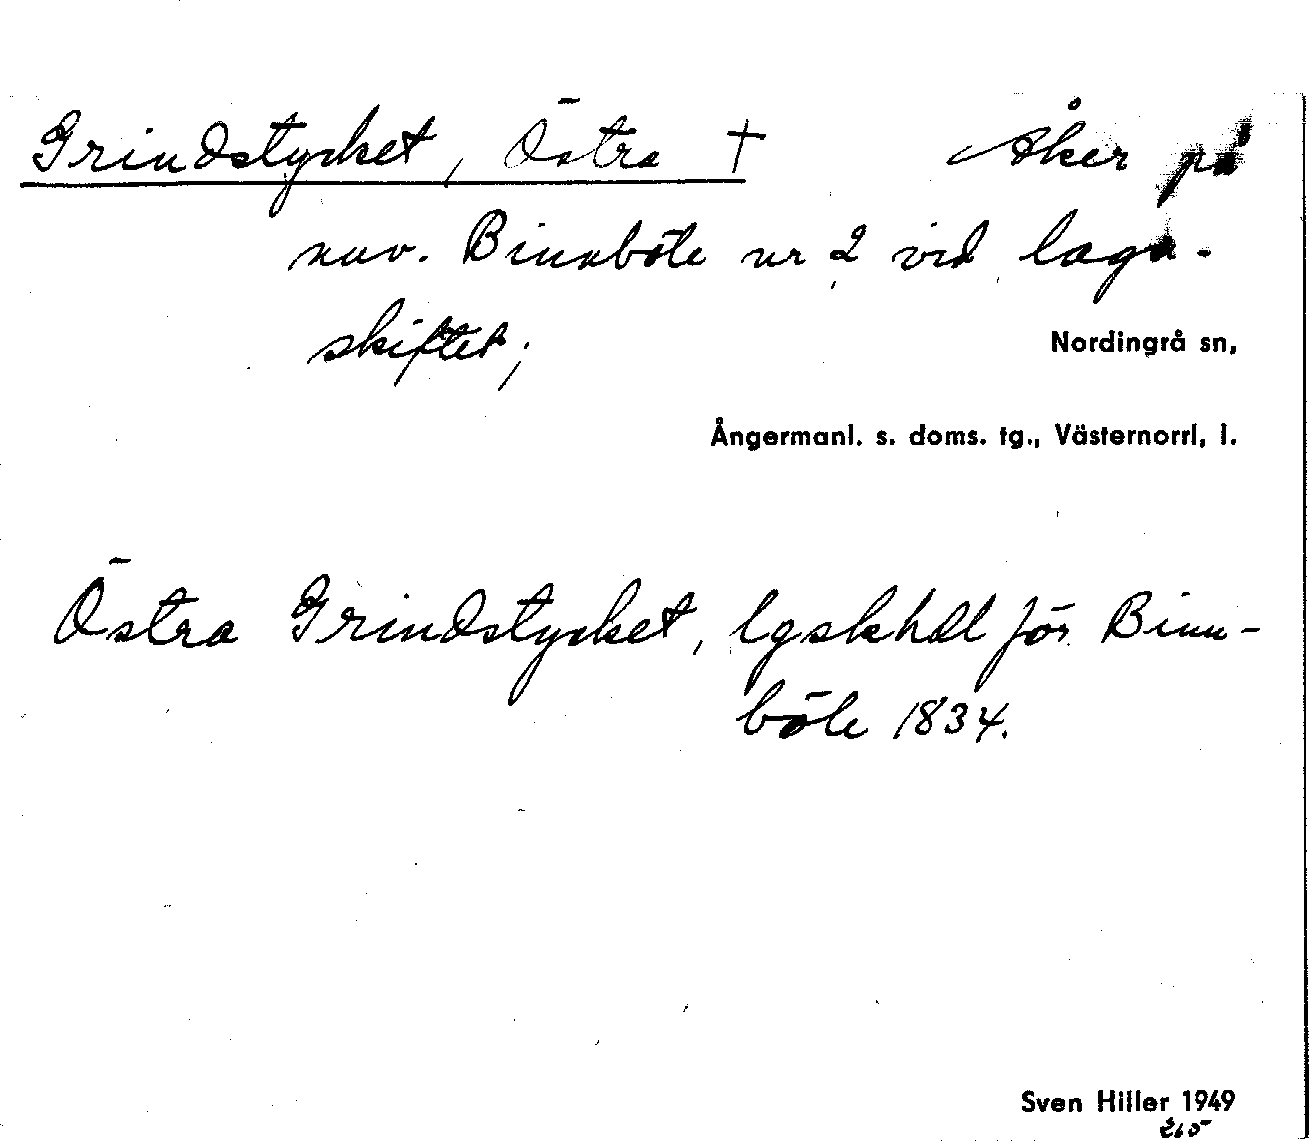 Grindstycket, Östra † Åker på
nuv. Binnböle nr 2 vid laga-
skiftet;
Nordingrå sn,
Ångermanl. s. doms. tg., Västernorrl, l.
Östra Grindstycket, lgskhdl för Binn-
böle 1834.
Sven Hiller 1949